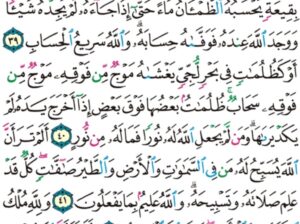 بِقِيعَةٍ يَحْسَبُهُ الظَّمْـَٔانُ مَآءً حَتَّىٰٓ إِذَا جَآءَهُۥ لَمْ يَجِدْهُ شَيْـًٔا
وَوَجَدَ ٱللَّهَ عِندَهُۥ فَوَفَّىٰهُ حِسَابَهُۥ وَٱللَّهُ سَرِيعُ ٱلْحِسَابِ ٣٩
أَوْ كَظُلُمَٰتٍ فِى بَحْرٍ لُّجِّىٍّ يَغْشَىٰهُ مَوْجٌ مِّن فَوْقِهِۦ مَوْجٌ مِّن
فَوْقِهِۦ سَحَابٌ ظُلُمَٰتٌۢ بَعْضُهَا فَوْقَ بَعْضٍ إِذَآ أَخْرَجَ يَدَهُۥ لَمْ
يَكَدْ يَرَىٰهَا وَمَن لَّمْ يَجْعَلِ ٱللَّهُ لَهُۥ نُورًا فَمَا لَهُۥ مِن نُّورٍ ٤٠ أَلَمْ تَرَ أَنَّ
ٱللَّهَ يُسَبِّحُ لَهُۥ مَن فِى ٱلسَّمَٰوَٰتِ وَٱلْأَرْضِ وَٱلطَّيْرُ صَٰٓفَّٰتٍ كُلٌّ قَدْ
عَلِمَ صَلَاتَهُۥ وَتَسْبِيحَهُۥ وَٱللَّهُ عَلِيمٌۢ بِمَا يَفْعَلُونَ ٤١ وَلِلَّهِ مُلْكُ